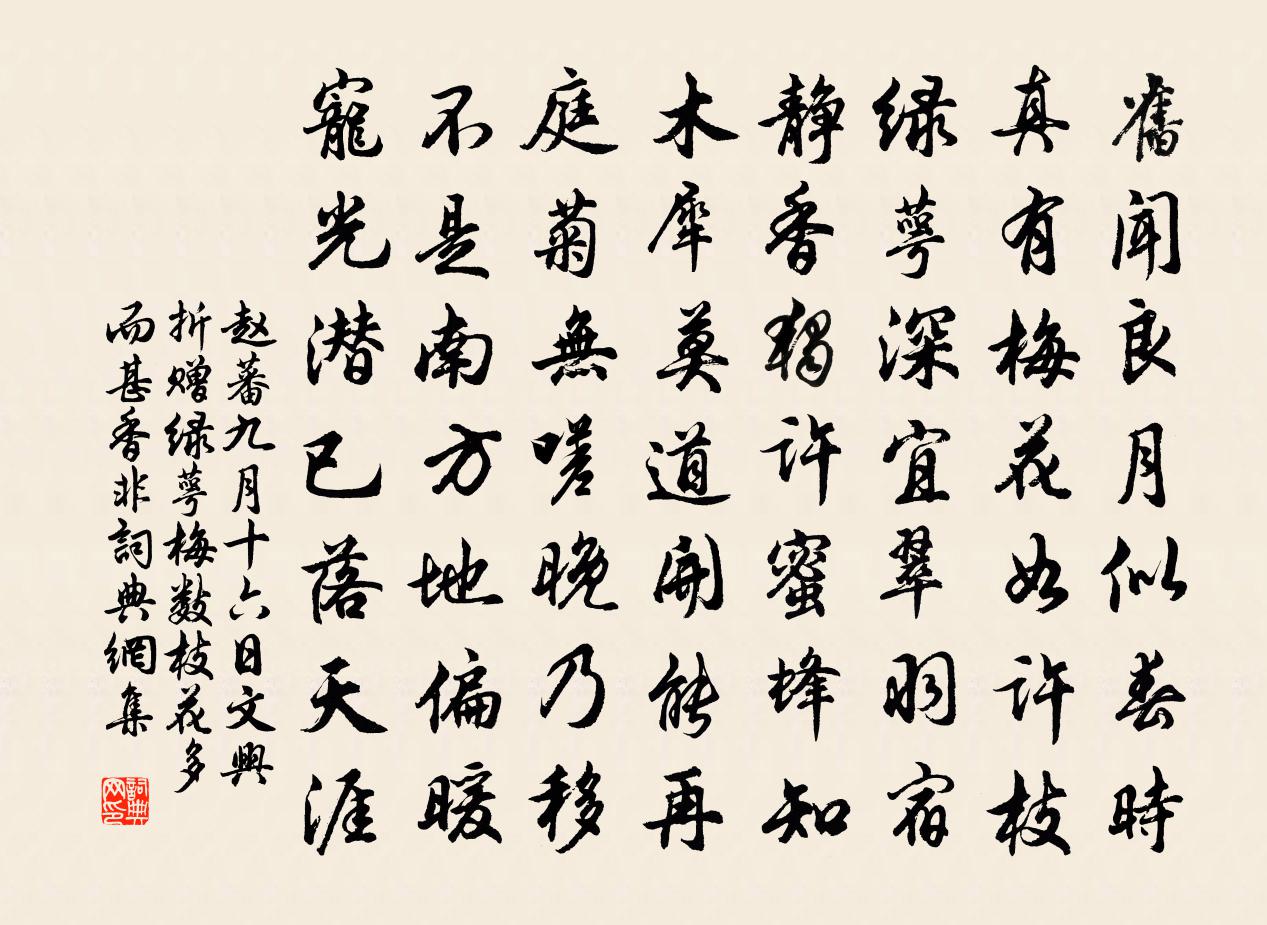 舊聞良月似春時
真有梅花如許枝
緑萼深宜翠羽宿
静香獨許蜜蜂知
木犀莫道開能再
庭菊無嗟晚乃移
不是南方地偏暖
寵光潜已落天涯
赵蕃九月十六日文興
折赠緑萼梅数枝花多
而甚香非詞典網集
詞典
网印